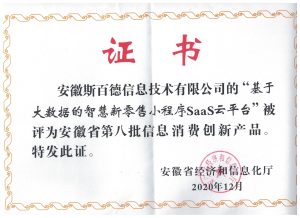 证书
安徽斯百德信息技术有限公司的“基于
大数据的智慧新零售小程序SaaS云平台”被
评为安徽省第八批信息消费创新产品。
特发此证。
安徽省经济和信息化厅
2020年12月